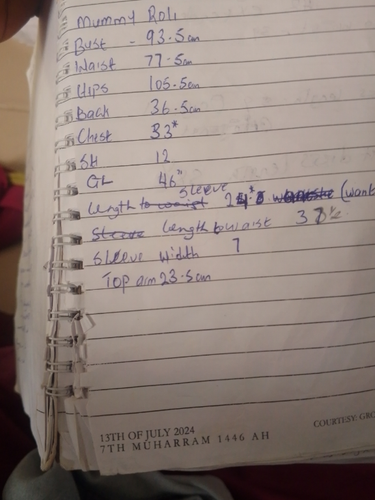 Mummy Roli
Bust - 93.5cm
Waist 77.5cm
Hips 105.5cm
Back 36.5cm
Chest 33"
SH 12
GL 46"
Length sleeve (want
Length to waist
Sleeve width 7
Top arm 23.5cm
13TH OF JULY 2024
7TH MUHARRAM 1446 AH
COURTESY: